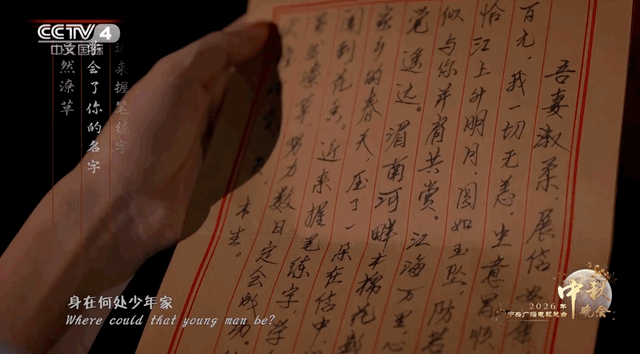 CCTV 4
中文国际
来握笔练字
学会了你的名字
然潦草
吾妻淑柔，展信
百元，我一切无恙，生意 顺
恰江上升明月，圆如玉坠，
似与你并肩共赏。江海万里
觉遥远。湄南河畔木棉花
家乡的春天，压了一朵在信中
闻到花香。近来握笔练字
虽然潦草，努力数日定会 学
木生。
身在何处少年家
Where could that young man be?
2026年
中央广播电视总台
中秋
晚会